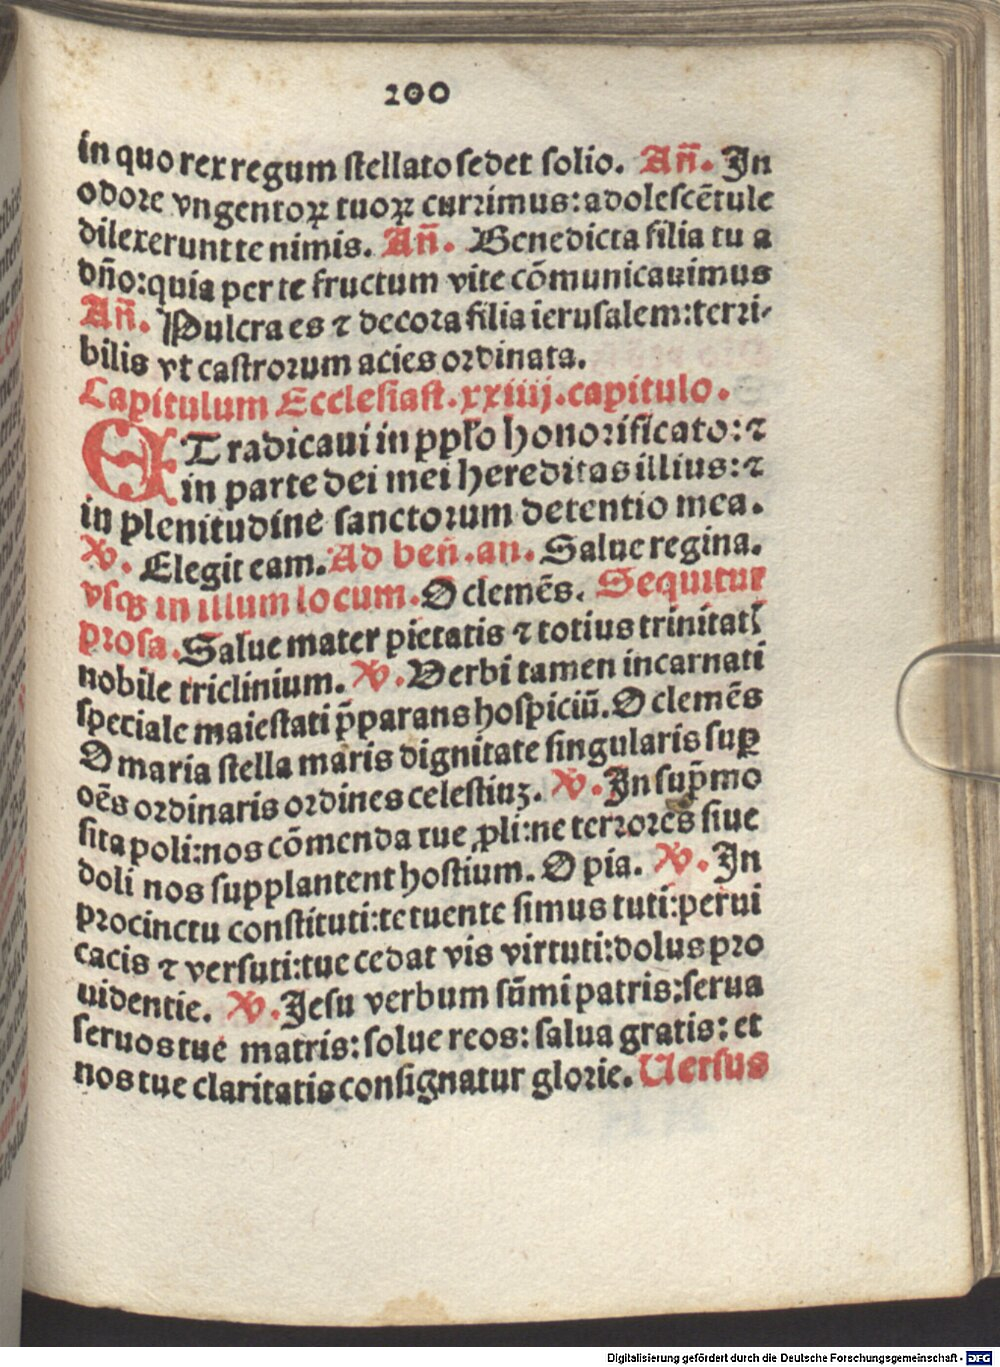 200
in quo rex regum stellato sedet solio. Añ. In
odore vngentoꝝ tuoꝝ currimus: adolescētule
dilexerunt te nimis. Añ. Benedicta filia tu a
dño: quia per te fructum vite cōmunicauimus
Añ. Pulcra es ⁊ decora filia ierusalem: terri-
bilis vt castrorum acies ordinata.
Capitulum Ecclesiast. xxiiij. capitulo.
ET radicaui in ppło honorificato: ⁊
in parte dei mei hereditas illius: ⁊
in plenitudine sanctorum detentio mea.
℣. Elegit eam. Ad beñ. an. Salue regina.
vsqꝫ in illum locum. O clemēs. Sequitur
prosa. Salue mater pietatis ⁊ totius trinitatꝭ
nobile triclinium. ℣. Verbi tamen incarnati
speciale maiestati p̄parans hospiciū. O clemēs
O maria stella maris dignitate singularis suꝑ
oēs ordinaris ordines celestiuꝫ. ℣. In sup̄mo
sita poli: nos cōmenda tue ꝓli: ne terrores siue
doli nos supplantent hostium. O pia. ℣. In
procinctu constituti: te tuente simus tuti: perui
cacis ⁊ versuti: tue cedat vis virtuti: dolus pro
uidentie. ℣. Jesu verbum sūmi patris: serua
seruos tue matris: solue reos: salua gratis: et
nos tue claritatis consignatur glorie. Versus
Digitalisierung gefördert durch die Deutsche Forschungsgemeinschaft - DFG